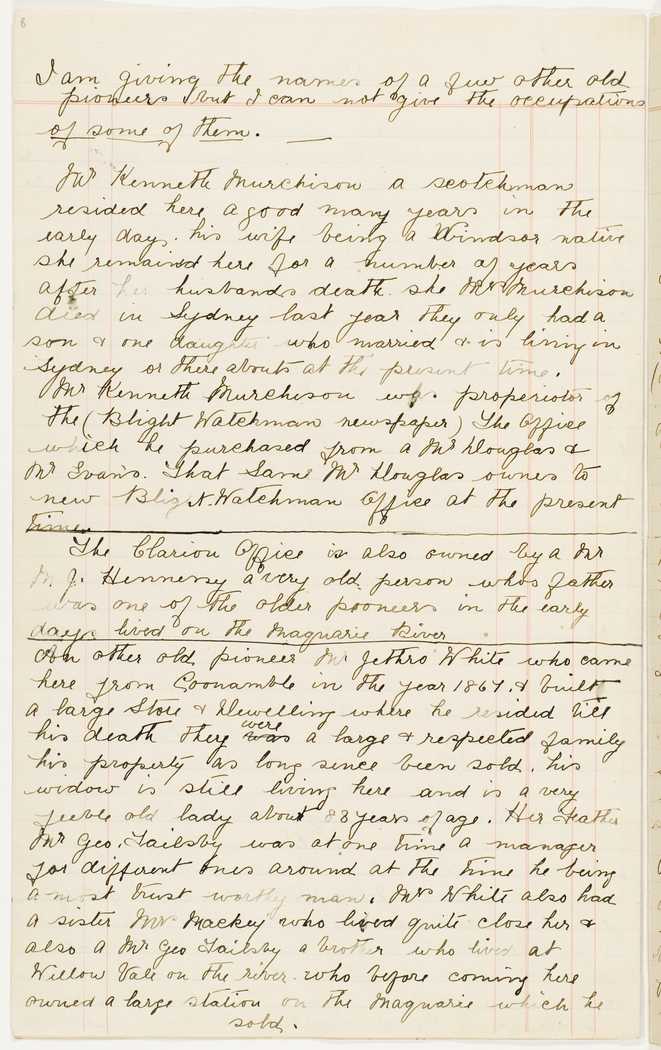 8
I am giving the names of a few other old
pioneers but I can not give the occupations
of some of them. —
Mr Kenneth Murchison a scotchman
resided here a good many years in the
early day. his wife being a Windsor native
she remained here for a number of years
after her husbands death. she Mrs Murchison
died in Sydney last year they only had a
son & one daughter who married & is living in
Sydney or there abouts at the present time.
Mr Kenneth Murchison was properiotor of
the (Blight Watchman newspaper) The Office
which he purchased from a Mr Douglas &
Mr Evans. That Same Mr Douglas ownes to
new Bligh. Watchman Office at the present
time.
The Clarion Office is also owned by a Mr
M. J. Hennessy a very old person whos father
was one of the older pooneers in the early
days lived on the Maguarie River
An other old pioneer Mr Jethro White who came
here from Coonamble in the year 1867. & built
a large Store & Dewelling where he resided till
his death they were was a large & respected family
his property as long since been sold. his
widow is still living here and is a very
feeble old lady about 88 years of age. Her Feather
Mr Geo. Tailsby was at one time a manager
for different ones around at the time he being
a most trust worthy man. Mrs White also had
a sister Mrs Mackey who lived quite close her &
also a Mr Geo Tailsby a brother who lived at
Willow Vale on the river. who before coming here
owned a large station on the Maguarie which he
sold.